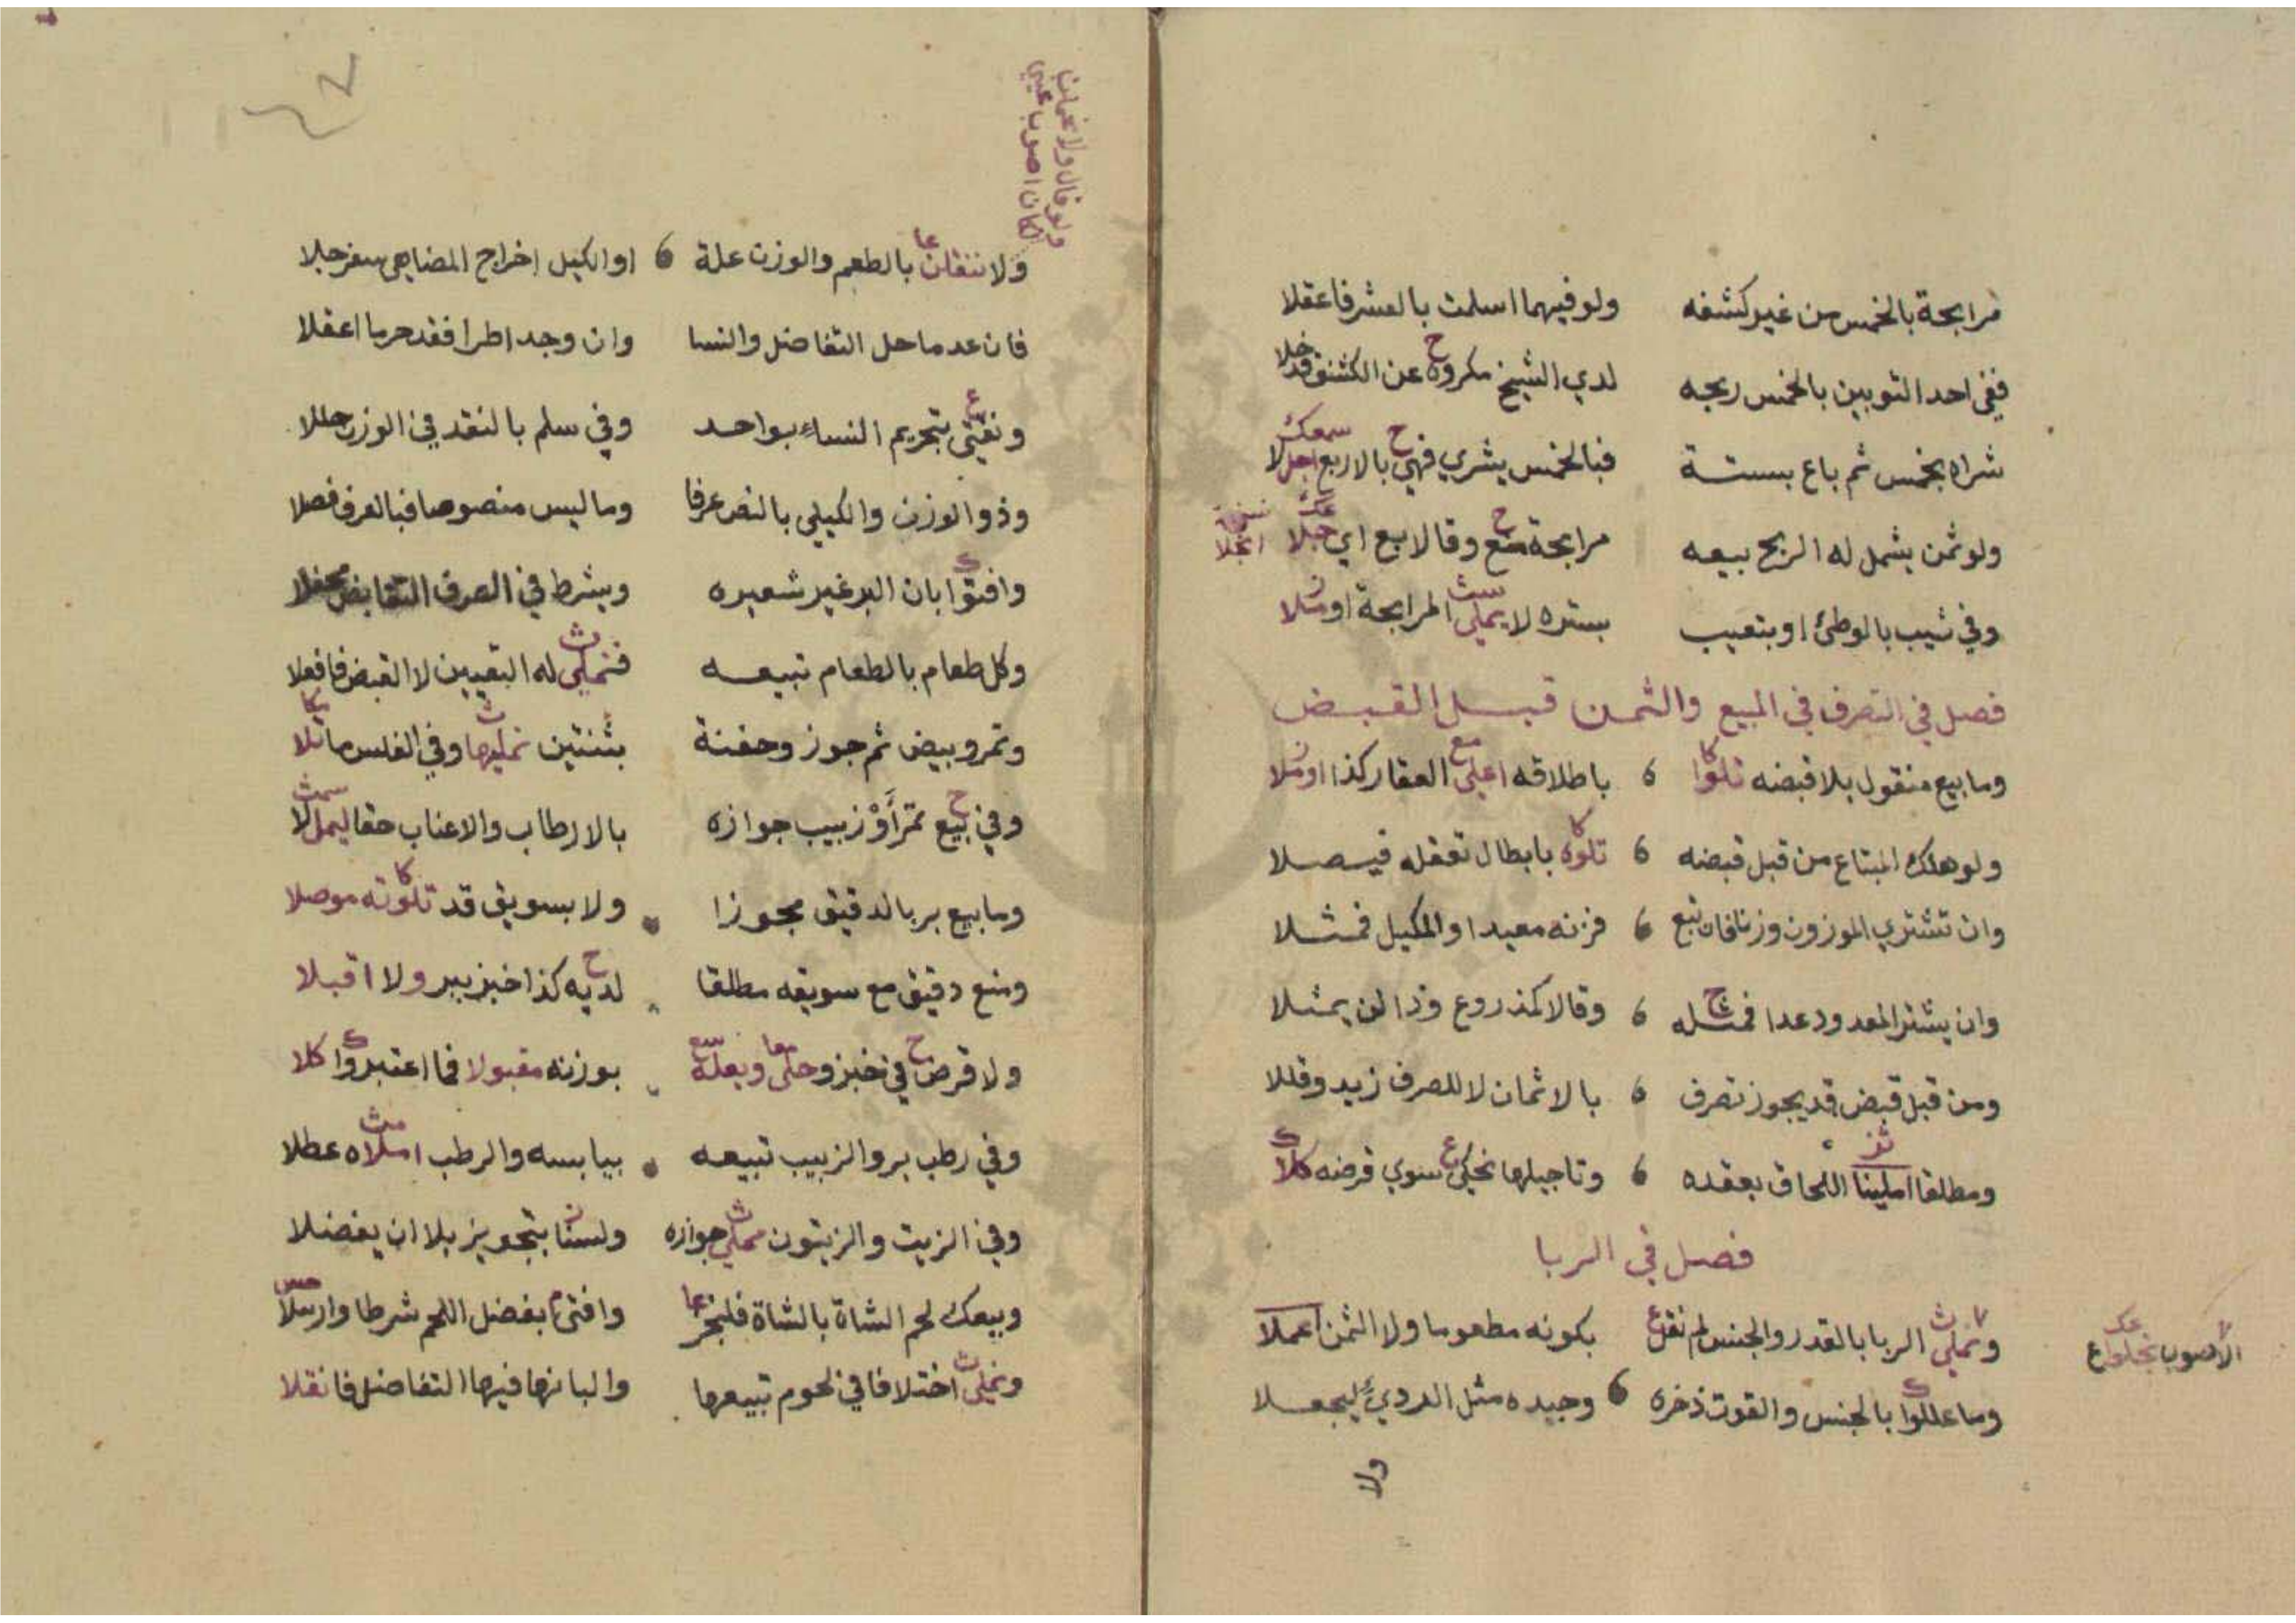 مرابحة بالخمس من غير كشفه ولو فيهما اسلمت بالعشر فاعقلا
ففي احد الثوبين بالخمس ربحه لدي الشيخ مكروه عن الكشف قد خلا
شراه بخمس ثم باع بستة فبالخمس يشري فهي بالاربع اجلا
ولو ثمن يشمل له الربح بيعه مرابحة منع وقالا بيع اي
وفي ثيب بالوطئ او بتعيب بستره لا يملي المرابحة او
فصل في التصرف في المبيع والثمن قبل القبض
وما بيع منقول بلا قبضه تلوا باطلاقه اعلي العقار كذا او
ولو هلك المبتاع من قبل قبضه تلوه بابطال تعقله فيصلا
وان تشتري الموزون وزنا فان تبع فزنه معيدا والمكيل فمثلا
وان يشتر المعدود عدا فمثله وقالا كمذروع وذا لن يمثلا
ومن قبل قبض قد يجوز تصرف بالاثمان لا للصرف زيد وقللا
ومطلقا املينا اللحاق بعقده وتاجيلها نحكي سوي قرضه كلا
فصل في الربا
ونملي الربا بالقدر والجنس لم نقل بكونه مطعوما ولا الثمن اعملا
الاصوب
وما عللوا بالجنس والقوت ذخره وجيده مثل الردي ليجعلا
ولا
ولو قال ولا
كان اصوب
ولا ننقلن بالطعم والوزن علة او الكيل اخراج المضاهي سفرجلا
فان عدما حل التفاضل والنسا وان وجد اطرا فقد حرما اعقلا
ونفتي بتحريم النساء بواحد وفي سلم بالنقد في الوزن حللا
وذو الوزن والكيلي بالنص عرفا وما ليس منصوصا فبالعرف فصلا
وافتوا بان البر غير شعيره ويشرط في الصرف التقابض
وكل طعام بالطعام تبيعه فنملي له التعيين لا القبض فافعلا
وتمر وبيض ثم جوز وحفنة بثنتين نمليها وفي الفلس ما تلا
وفي بيع تمر أَوْ زبيب جوازه بالارطاب والاعناب حقا ليملا
وما بيع بر بالدقيق مجوزا ولا بسويق قد تلوته موصلا
ومنع دقيق مع سويقه مطلقا لديه كذا خبز ببر ولا اقبلا
ولا قرض في خبز وحلي وبعله بوزنه مقبولا فما اعتبروا كلا
وفي رطب بر والزبيب تبيعه بيابسه والرطب املاه عطلا
وفي الزيت والزيتون مملي جوازه ولسنا بتجويز بلا ان يفضلا
وبيعك لحم الشاة بالشاة فلنجز وافتي بفضل اللحم شرطا وارسلا
ونملي اختلافا في لحوم تبيعها والبانها فيها التفاضل فانقلا